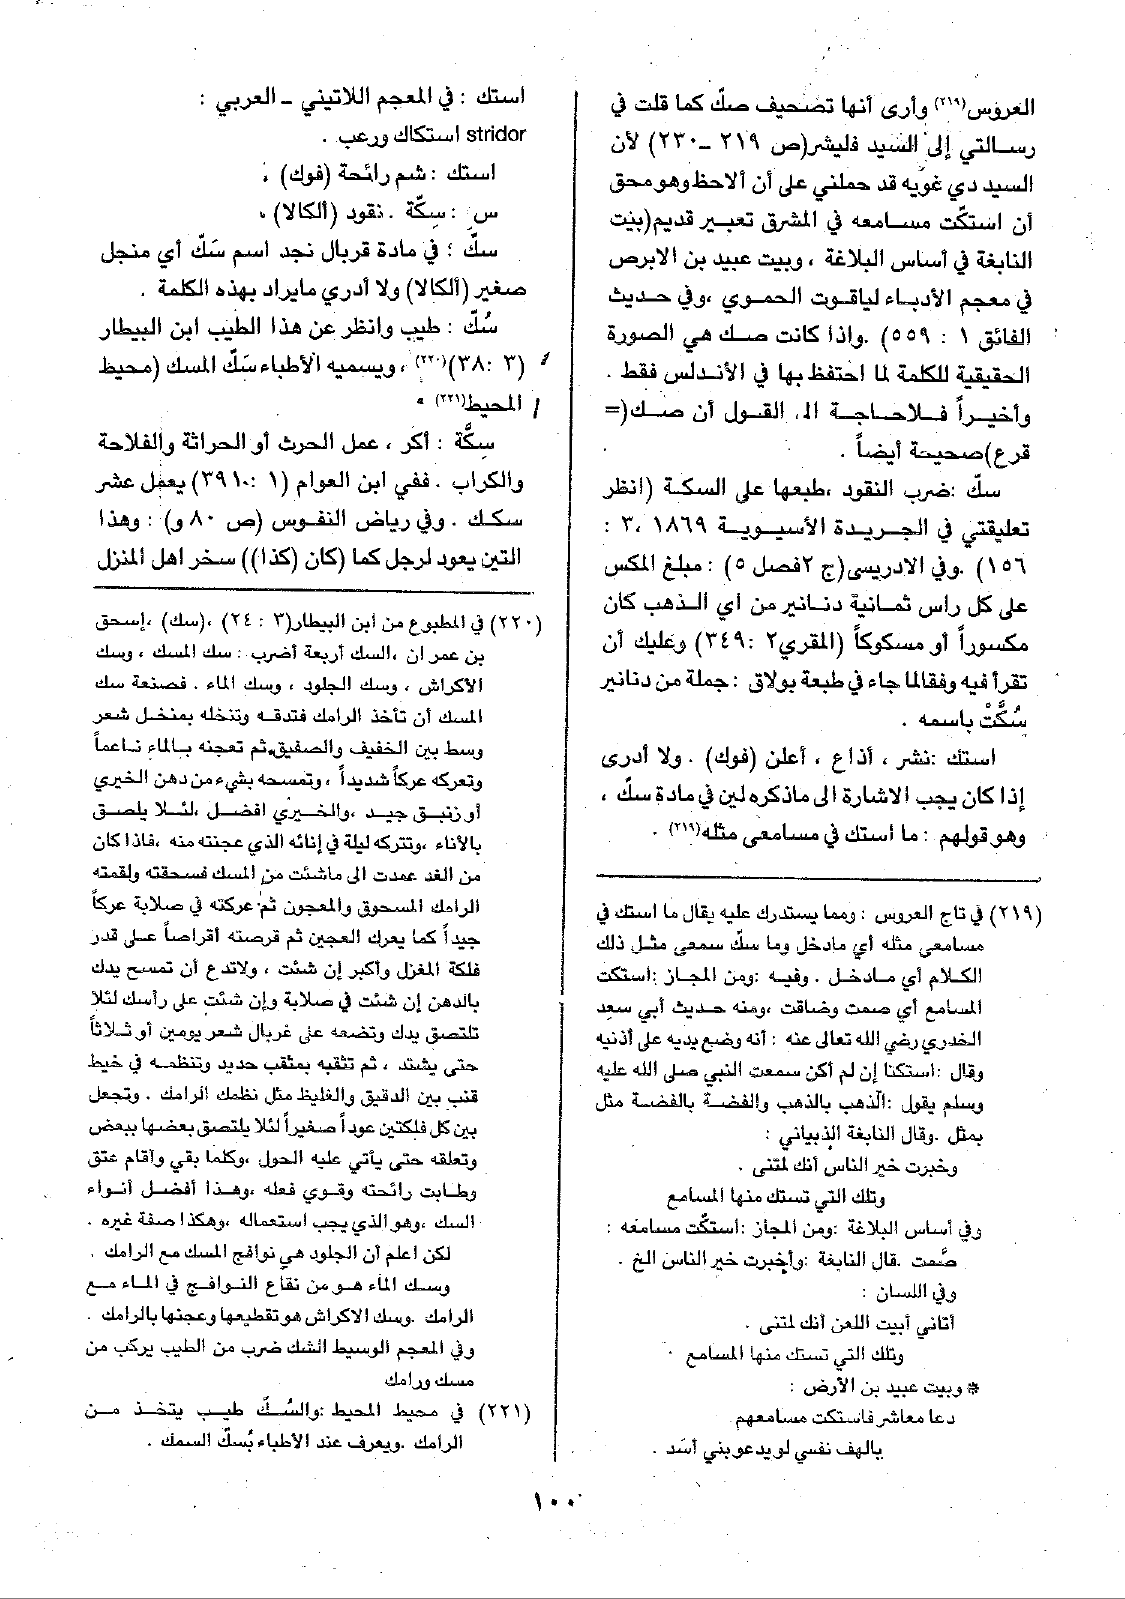 العروس(٢١٩) وأرى أنها تصحيف صكّ كما قلت في
رسالتي إلى السيد فليشر(ص ٢١٩ –٢٣٠) لأن
السيد دي غويه قد حملني على أن ألاحظ وهو محق
أن استكّت مسامعه في المشرق تعبير قديم(بيت
النابغة في أساس البلاغة ، وبيت عبيد بن الابرص
في معجم الأدباء لياقوت الحموي ،وفي حديث
الفائق ١ : ٥٥٩) .واذا كانت صك هي الصورة
الحقيقية للكلمة لما احتفظ بها في الأندلس فقط .
وأخيراً فلاحاجة الى القول أن صك(=
قرع)صحيحة أيضاً .
سكّ :ضرب النقود ،طبعها على السكة (انظر
تعليقتي في الجريدة الأسيوية ١٨٦٩ ،٣ :
١٥٦) .وفي الادريسي(ج ٢فصل ٥) : مبلغ المكس
على كل راس ثمانية دنانير من أي الذهب كان
مكسوراً أو مسكوكاً (المقري٢ :٣٤٩) وعليك أن
تقرأ فيه وفقالما جاء في طبعة بولاق : جملة من دنانير
سُكَّتْ باسمه .
استك :نشر ، أذاع ، أعلن (فوك) . ولا أدرى
إذا كان يجب الاشارة الى ماذكره لين في مادة سكّ ،
وهو قولهم : ما استك في مسامعى مثله(٢١٩) .
(٢١٩) في تاج العروس : ومما يستدرك عليه يقال ما استك في
مسامعي مثله أي مادخل وما سكّ سمعى مثل ذلك
الكلام أي مادخل . وفيه :ومن المجاز :استكت
المسامع أي صمت وضاقت ،ومنه حديث أبي سعد
الخدري رضي الله تعالى عنه : أنه وضع يديه على أذنيه
وقال :استكنا إن لم أكن سمعت النبي صلى الله عليه
وسلم يقول :الذهب بالذهب والفضة بالفضة مثل
بمثل .وقال النابغة الذبياني :
وخبرت خير الناس أنك لمتنى .
وتلك التي تستك منها المسامع
وفي أساس البلاغة :ومن المجاز :استكّت مسامعه :
صَّمت .قال النابغة :وأخبرت خير الناس الخ .
وفي اللسان :
أتاني أبيت اللعن أنك لمتنى .
وتلك التي تستك منها المسامع .
* وبيت عبيد بن الأرض :
دعا معاشر فاستكت مسامعهم
يالهف نفسي لو يدعو بني أسَد .
استك : في المعجم اللاتيني – العربي :
stridor استكاك ورعب .
استك : شم رائحة (فوك) .
س : سِكّة . نقود (ألكالا) .
سكّ : في مادة قربال نجد اسم سَكّ أي منجل
صغير (ألكالا) ولا أدري مايراد بهذه الكلمة .
سُكّ : طيب وانظر عن هذا الطيب ابن البيطار
(٣ :٣٨)(٢٢٠) ، ويسميه الأطباء سَكّ المسك (محيط
المحيط(٢٢١) .
سِكَّة : أكر ، عمل الحرث أو الحراثة والفلاحة
والكراب . ففي ابن العوام (١ :٣٩١٠) يعمل عشر
سكك . وفي رياض النفوس (ص ٨٠ و) : وهذا
التين يعود لرجل كما (كان (كذا)) سخر اهل المنزل
(٢٢٠) في المطبوع من ابن البيطار(٣ : ٢٤) ،(سك) ،إسحق
بن عمران ،السك أربعة أضرب : سك المسك ، وسك
الأكراش ، وسك الجلود ، وسك الماء . فصنعة سك
المسك أن تأخذ الرامك فتدقه وتنخله بمنخل شعر
وسط بين الخفيف والصفيق.ثم تعجنه بالماء ناعماً
وتعركه عركاً شديداً ، وتمسحه بشيء من دهن الخيري
أو زنبق جيد ،والخيري افضل ،لئلا يلصق
بالأناء ،وتتركه ليلة في إنائه الذي عجنته منه ،فاذا كان
من الغد عمدت الى ماشئت من المسك فسحقته ولقمته
الرامك المسحوق والمعجون ثم عركته في صلابة عركاً
جيداً كما يعرك العجين ثم قرصته أقراصاً على قدر
فلكة المغزل وأكبر إن شئت ، ولاتدع أن تمسح يدك
بالدهن إن شئت في صلابة وإن شئت على رأسك لئلا
تلتصق يدك وتضعه على غربال شعر يومين أو ثلاثاً
حتى يشتد ، ثم تثقبه بمثقب حديد وتنظمه في خيط
قنب بين الدقيق والغليظ مثل نظمك الرامك . وتجعل
بين كل فلكتين عوداً صغيراً لئلا يلتصق بعضها ببعض
وتعلقه حتى يأتي عليه الحول ،وكلما بقي وأقام عتق
وطابت رائحته وقوي فعله ،وهذا أفضل أنواء
السك ،وهو الذي يجب استعماله ،وهكذا صفة غيره .
لكن اعلم أن الجلود هي نوافج المسك مع الرامك .
وسك الماء هو من نقاع النوافج في الماء مع
الرامك .وسك الاكراش هو تقطيعها وعجنها بالرامك .
وفي المعجم الوسيط السُك ضرب من الطيب يركب من
مسك ورامك
(٢٢١) في محيط المحيط :والسُّكّ طيب يتخذ من
الرامك .ويعرف عند الأطباء بُسكّ السمك .
١٠٠